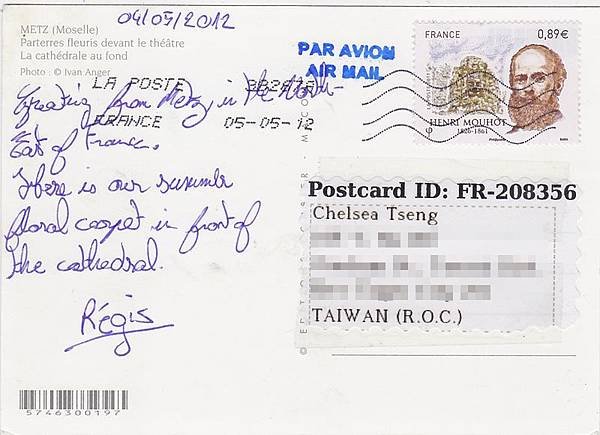 04/05/2012
METZ (Moselle)
Parterres fleuris devant le théâtre
La cathédrale au fond
Photo : © Ivan Anger
LA POSTE
FRANCE 05-05-12
PAR AVION
AIR MAIL
FRANCE 0,89€
HENRI MOUHOT
1826-1861
Greeting from Metz in the North-
East of France.
Here is our summer
floral carpet in front of
the cathedral.
Régis
Postcard ID: FR-208356
Chelsea Tseng
TAIWAN (R.O.C.)
5746300197